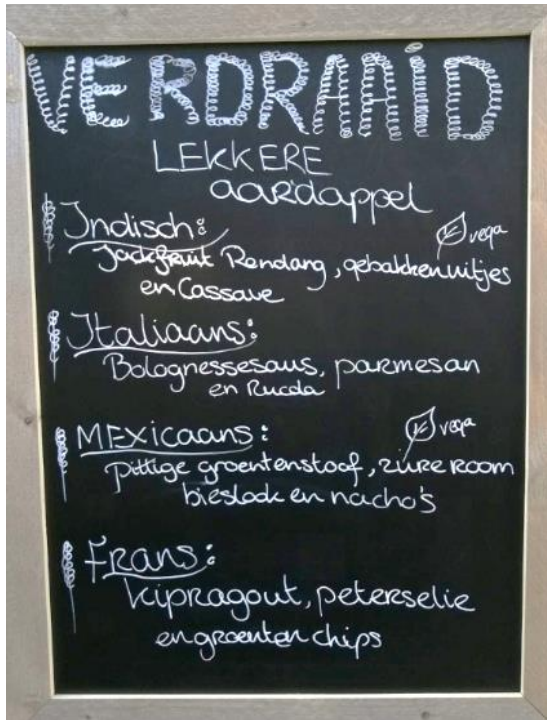 VERDRAAID
LEKKERE
aardappel
Indisch:
vega
Jackfruit Rendang, gebakken uitjes
en Cassave
Italiaans:
Bolognessesaus, parmesan
en Rucola
MEXicaans:
vega
pittige groentenstoof, zure room
bieslook en nacho's
Frans:
kipragout, peterselie
en groenten chips